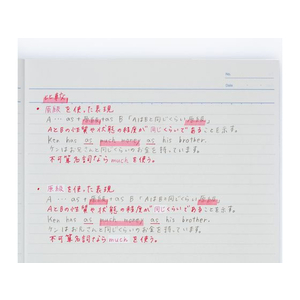 No.
Date
比較
• 原級を使った表現
A … as + 原級 + as B 「AはBと同じくらい原級」
AとBの性質や状態の程度が同じくらいであることを示す。
Ken has as much money as his brother.
ケンはお兄さんと同じくらいのお金を持っています。
不可算名詞なら much を使う。
• 原級を使った表現
A … as + 原級 + as B 「AはBと同じくらい原級」
AとBの性質や状態の程度が同じくらいであることを示す。
Ken has as much money as his brother.
ケンはお兄さんと同じくらいのお金を持っています。
不可算名詞なら much を使う。